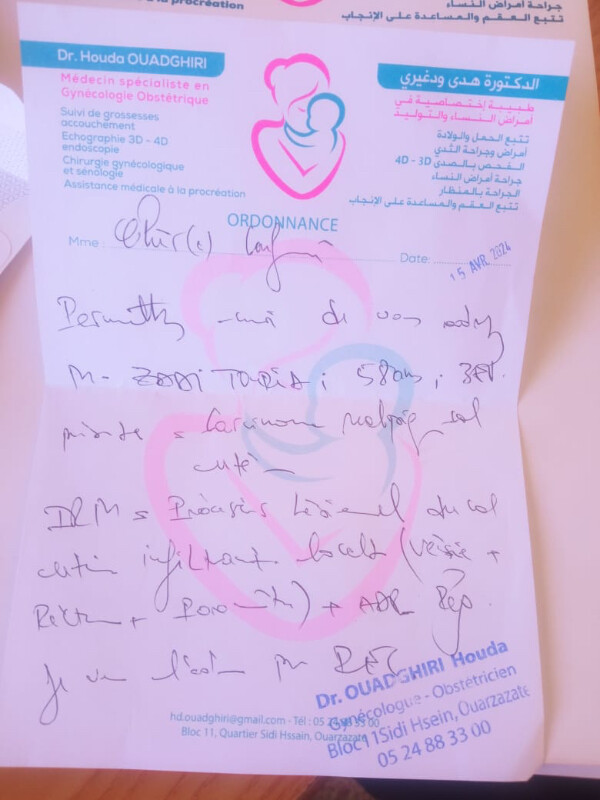 à la procréation
جراحة أمراض النساء
تتبع العقم والمساعدة على الإنجاب
Dr. Houda OUADGHIRI
Médecin spécialiste en
Gynécologie Obstétrique
Suivi de grossesses
accouchement
Echographie 3D - 4D
endoscopie
Chirurgie gynécologique
et sénologie
Assistance médicale à la procréation
الدكتورة هدى ودغيري
طبيبة إختصاصية في
أمراض النساء والتوليد
تتبع الحمل والولادة
أمراض وجراحة الثدي
الفحص بالصدى 3D - 4D
جراحة أمراض النساء
الجراحة بالمنظار
تتبع العقم والمساعدة على الإنجاب
ORDONNANCE
Mme : Cher(e) Confrère
Date: 15 AVR. 2024
Permettez-moi de vous
M- TOURIA ; 58 ans ;
Carcinome col
IRM = Processus lésionnel du col
utérin infiltrant locale (vessie +
Rectum + ) + ADP
Je vous pour
Dr. OUADGHIRI Houda
Gynécologue - Obstétricien
Bloc 11 Sidi Hsein, Ouarzazate
05 24 88 33 00
hd.ouadghiri@gmail.com - Tél : 05 24 88 33 00
Bloc 11, Quartier Sidi Hssain, Ouarzazate